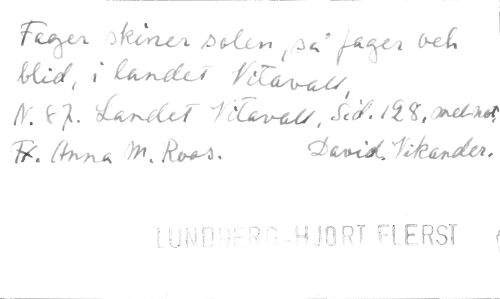 Fager skiner solen, så fager och
blid, i landet Vitavall,
N. 87. Landet Vitavall, Sid. 128, med not.
Tx. Anna M. Roos. David. Vikander.
LUNDBERG-HJORT FLERST